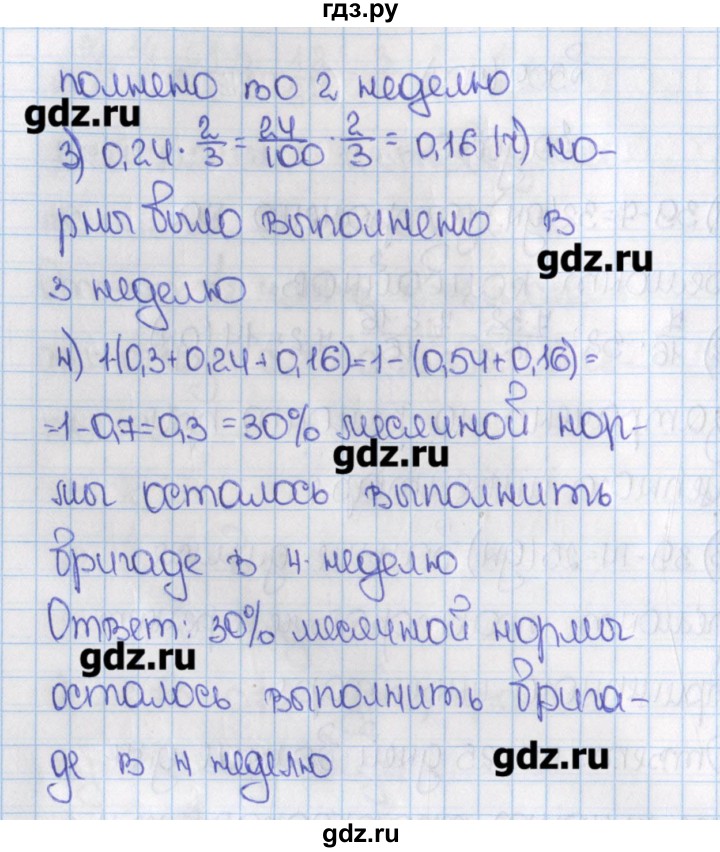 гдз.ру
полнено во 2 неделю
gdz.ru
3) 0,24 · 2/3 = 24/100 · 2/3 = 0,16 (ч) но-
рмы было выполнено в
gdz.ru
3 неделю
4) 1-(0,3+0,24+0,16)=1-(0,54+0,16)=
=1-0,7=0,3=30% месячной нор-
gdz.ru
мы осталось выполнить
бригаде в 4 неделю
Ответ: 30% месячной нормы
gdz.ru
осталось выполнить брига-
де в 4 неделю
gdz.ru
gdz.ru